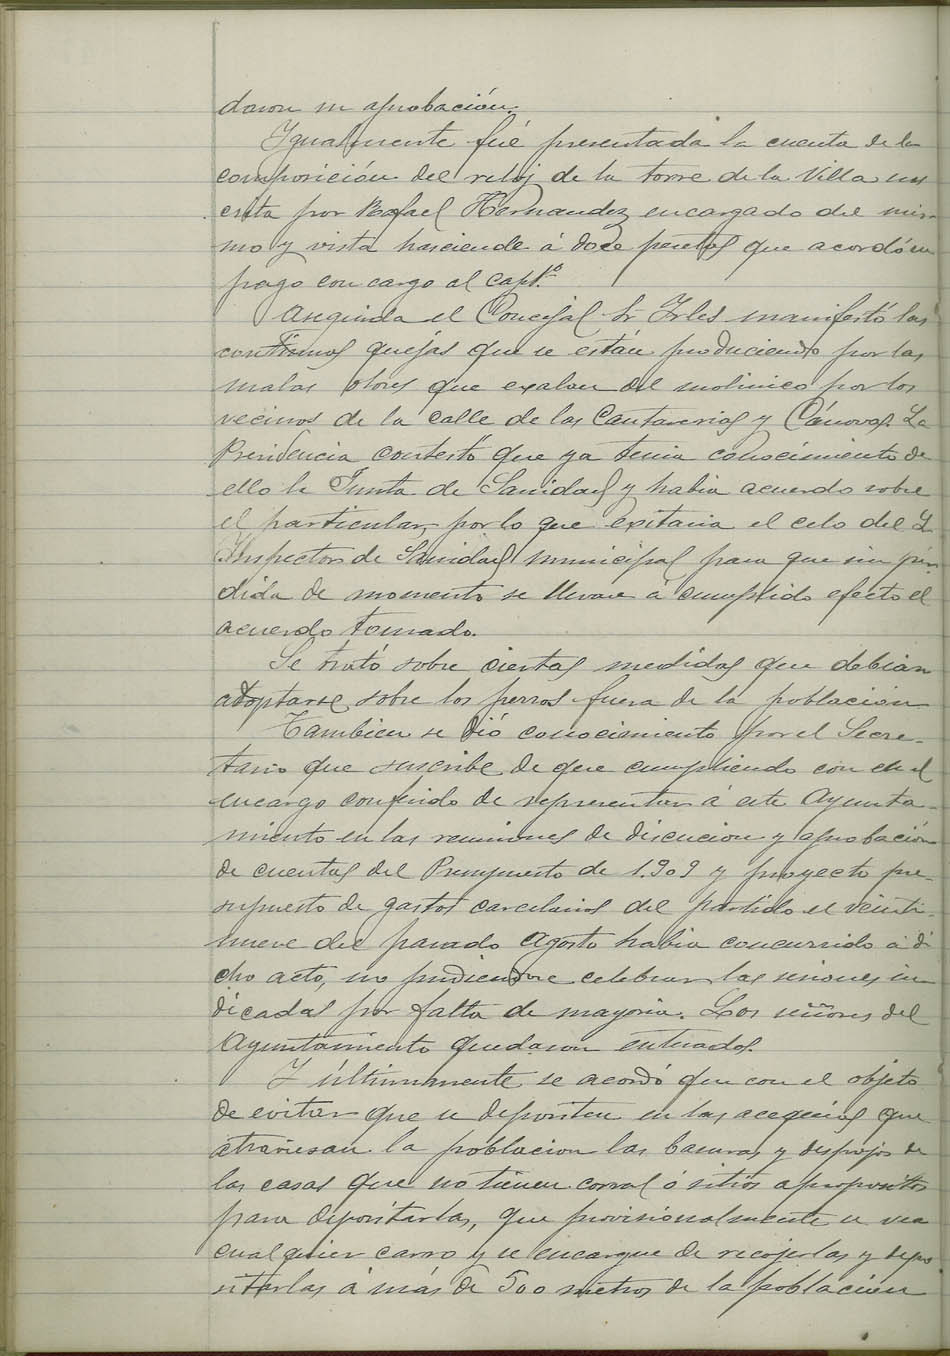 daron su aprobación.
Igualmente fué presentada la cuenta de la
composición del reloj de la torre de la Villa sus
crita por Rafael Hernandez encargado del mis-
mo y vista hasciende á doce pesetas que acordó su
pago con cargo al capt.º
Aseguida el Concejal Sr Irles manifestó las
continuas quejas que se están produciendo por las
malas olores que exalan del molinico por los
vecinos de la calle de las Cantarerias y Cánovas. La
Presidencia contestó que ya tenia conocimiento de
ello la Junta de Sanidad y habia acuerdo sobre
el particular, por lo que exitaria el celo del S.
Inspector de Sanidad municipal para que sin pér-
dida de momento se llevare á cumplido efecto el
acuerdo tomado.
Se trató sobre ciertas medidas que debian
adoptarse sobre los perros fuera de la poblacion
Tambien se dió conocimiento por el Secre-
tario que suscribe de que cumpliendo con el
encargo conferido de representar á este Ayunta-
miento en las reuniones de discucion y aprobación
de cuentas del Presupuesto de 1.909 y proyecto pre-
supuesto de gastos carcelarios del partido el veinti-
nueve del pasado Agosto habia concurrido á di
cho acto, no pudiendose celebrar las uniones in
dicadas por falta de mayoria. Los señores del
Ayuntamiento quedaron enterados.
Y últimamente se acordó que con el objeto
de evitar que se depositen en las acequias que
atraviesan la poblacion las basuras y despojos de
las casas que no tienen corral ó sitios apropositos
para depositarlas, que provisionalmente se vea
cualquier carro y se encargue de recojerlas y depo
sitarlas á más de 500 metros de la poblacion